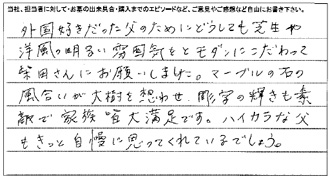 当社、担当者に対して・お墓の出来具合・購入までのエピソードなど、ご意見やご感想など自由にお書き下さい。
外国好きだった父のためにどうしても芝生や
洋風の明るい雰囲気をとモダンにこだわって
柴田さんにお願いしました。マーブルの石の
風合いが大樹を想わせ、彫字の輝きも素
敵で家族皆大満足です。ハイカラな父
もきっと自慢に思ってくれているでしょう。